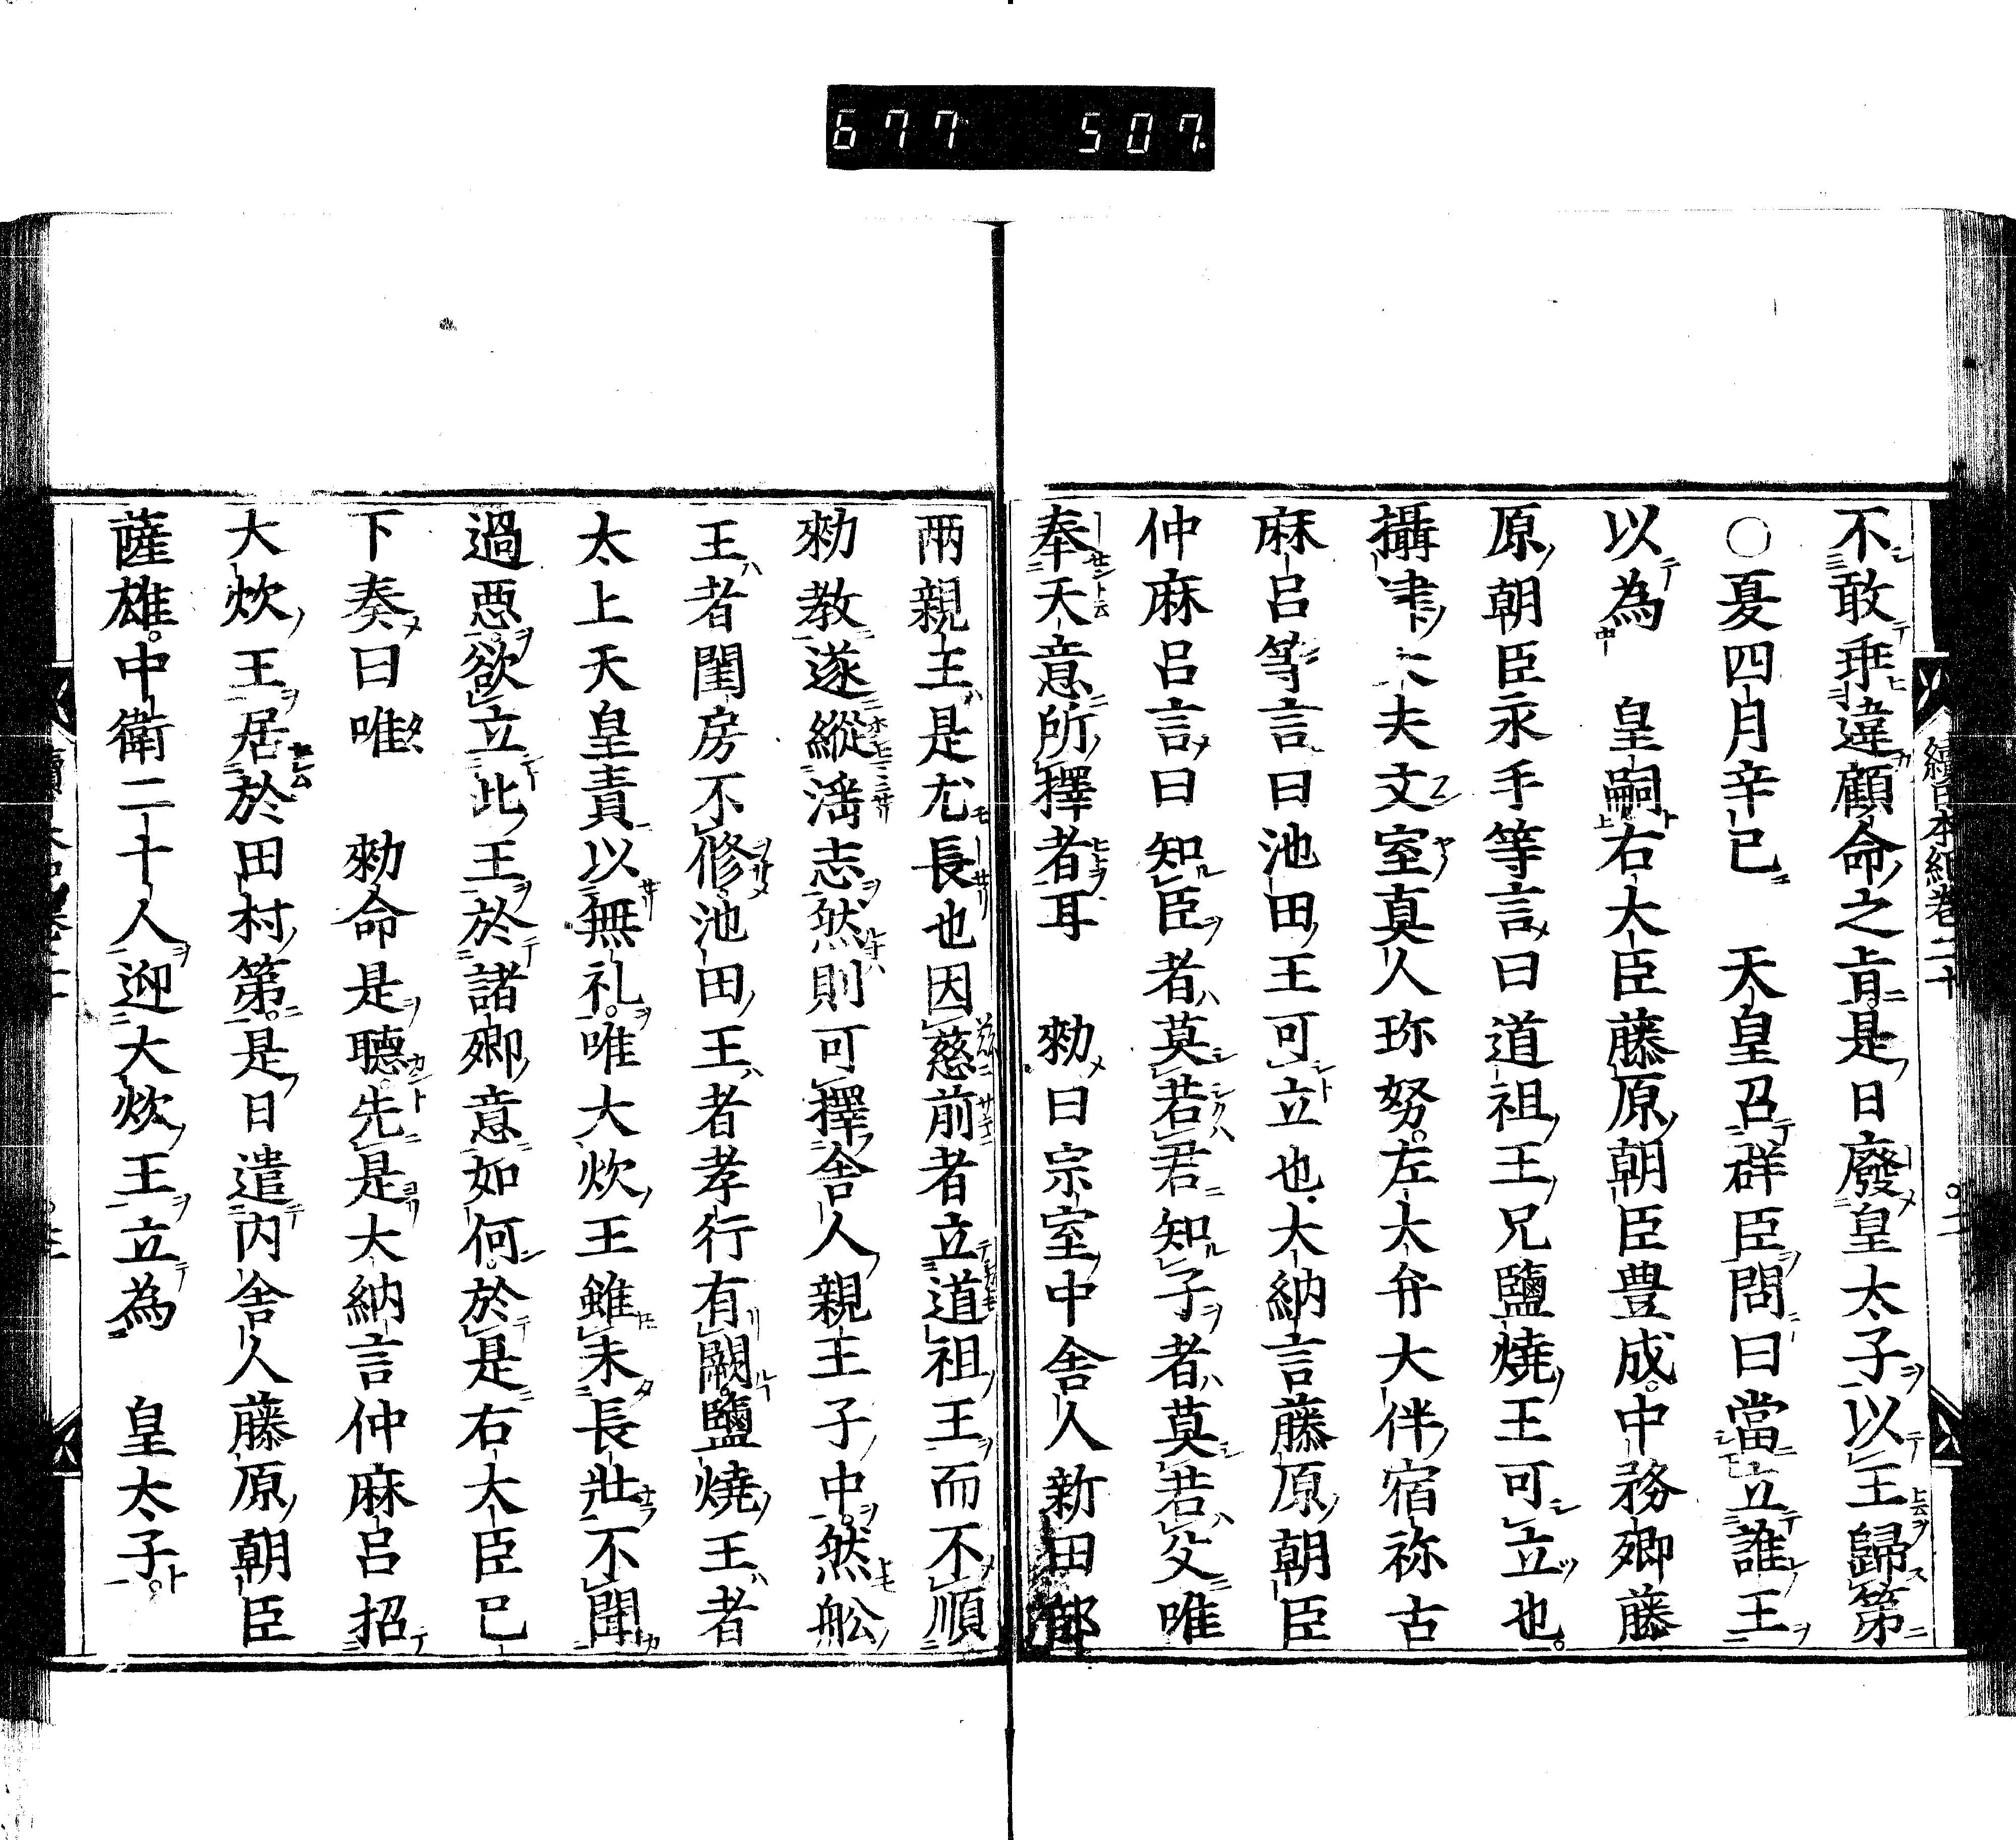 677 507
續日本紀卷二十 ○二
不敢乖違顧命之旨是日廢皇太子以王歸第
○夏四月辛巳 天皇召群臣問曰當立誰王
以為 皇嗣右大臣藤原朝臣豊成中務卿藤
原朝臣永手等言曰道祖王兄鹽燒王可立也
攝津大夫文室真人珍努左大弁大伴宿祢古
麻呂等言曰池田王可立也大納言藤原朝臣
仲麻呂言曰知臣者莫若君知子者莫若父唯
奉天意所擇者耳 勑曰宗室中舍人新田部
兩親王是尤長也因慈前者立道祖王而不順
勑教遂縱淫志然則可擇舍人親王子中然舩
王者閨房不修池田王者孝行有闕鹽燒王者
太上天皇責以無礼唯大炊王雖未長壯不聞
過惡欲立此王於諸卿意如何於是右大臣已
下奏曰唯 勑命是聽先是大納言仲麻呂招
大炊王居於田村第是日遣內舍人藤原朝臣
薩雄中衛二十人迎大炊王立為 皇太子